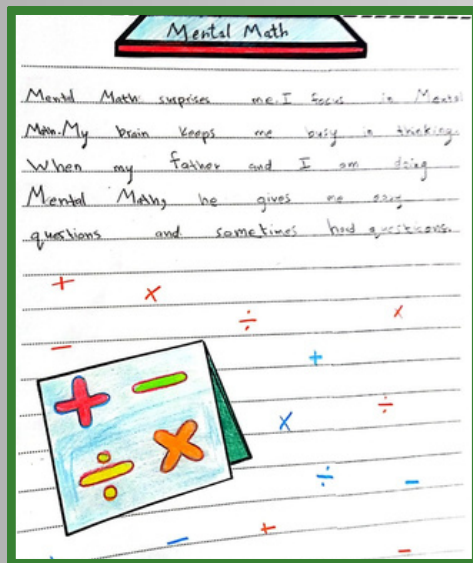 Mental Math
Mental Math surprises me. I focus in Mental
Math. My brain keeps me busy in thinking.
When my father and I am doing
Mental Math, he gives me easy
questions and sometimes hard questions.
+ × ÷ ×
− +
+ − × ÷
÷ × ÷ −
− + −